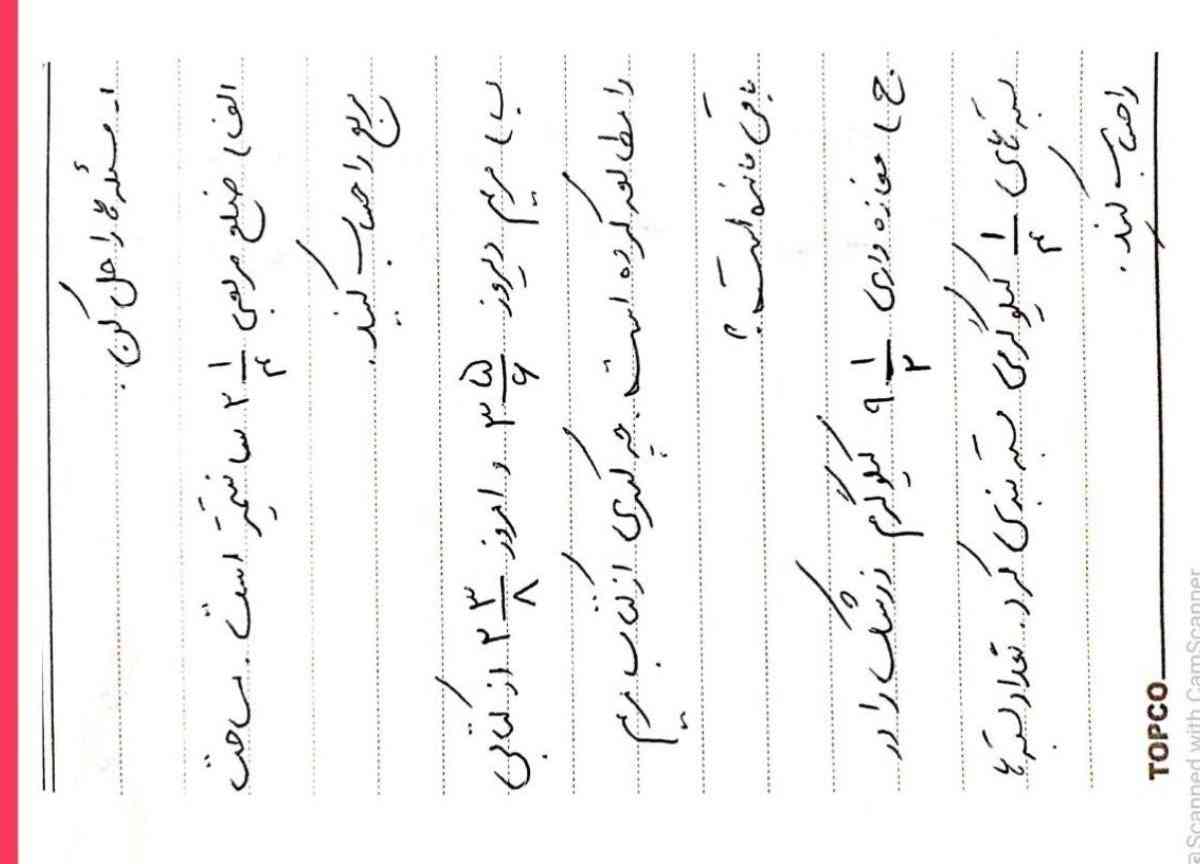 ۱ـ مسئله ها را حل کن.
الف) ضلع مربعی ۲ ۱/۴ سانتیمتر است. مساحت
مربع را حساب کنید.
ب) مریم دیروز ۳ ۵/۶ و امروز ۲ ۳/۸ از کتابی
را مطالعه کرده است. چه کسری از کتاب مریم
باقی مانده است؟
ج) مغازه داری ۹ ۱/۲ کیلوگرم زرشک را در
بسته های ۱/۴ کیلوگرمی بسته بندی کرد. تعداد بسته ها
را حساب کنید.
TOPCO
Scanned with CamScanner